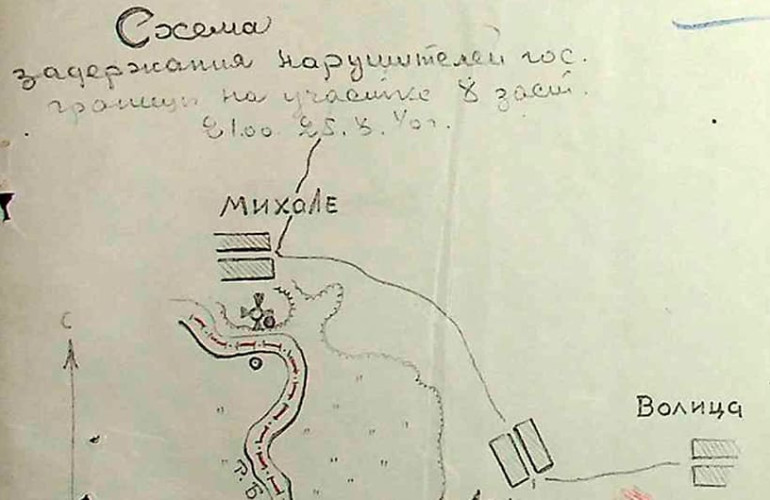 Схема
задержания нарушителей гос.
границы на участке 8 заст.
МИХАЛЕ
С
Волица
р. Б